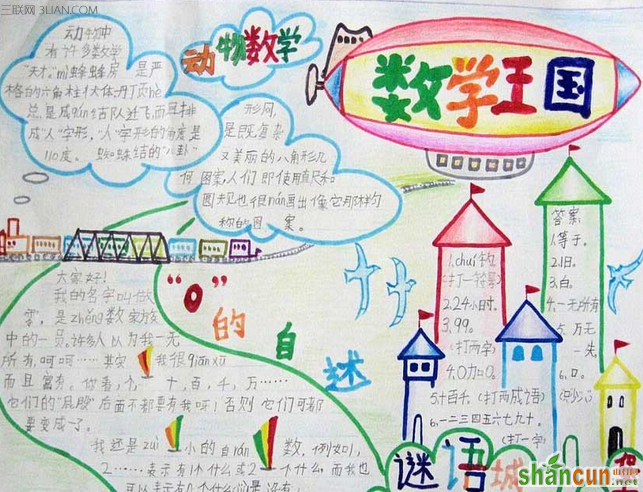 三联网 3LIAN.COM
动物数学
数学王国
动物中
有许多数学
"天才",mì蜂蜂房 是严
格的六角柱状体,丹丁頂hè
总是成qún结队迁飞,而且排
成"人"字形,"人"字形的角度是
110度。蜘蛛结的"八卦"
形网,
是既复杂
又美丽的八角形几
何图案,人们即使用直尺和
圆规也很nán画出像它那样匀
称的图案。
"0"的自述
大家好!
我的名字叫做
零,是zhěng数家族
中的一员。许多人以为我一无
所有,呵呵……其实我很qiān xū
而且富有。你看,个、十、百、千、万……
它们的"屁股"后面不都要有我呀!否则它们可都
要变成了。
我还是zuì小的自rán数,例如1,
2……表示有1个什么或2个什么,而我也
可以表示有0个什么,就是没有。
1.chuí钓
(打一符号)
2.24小时。
3.99。
(打两字)
4.0加0。
5.十百千。(打两成语)
6.一二三四五六七九十。
(打一字)
答案
1.等于。
2.旧。
3.白。
4.一无所有
5.万无
一失。
6.口。
谜语城
shancun
.net